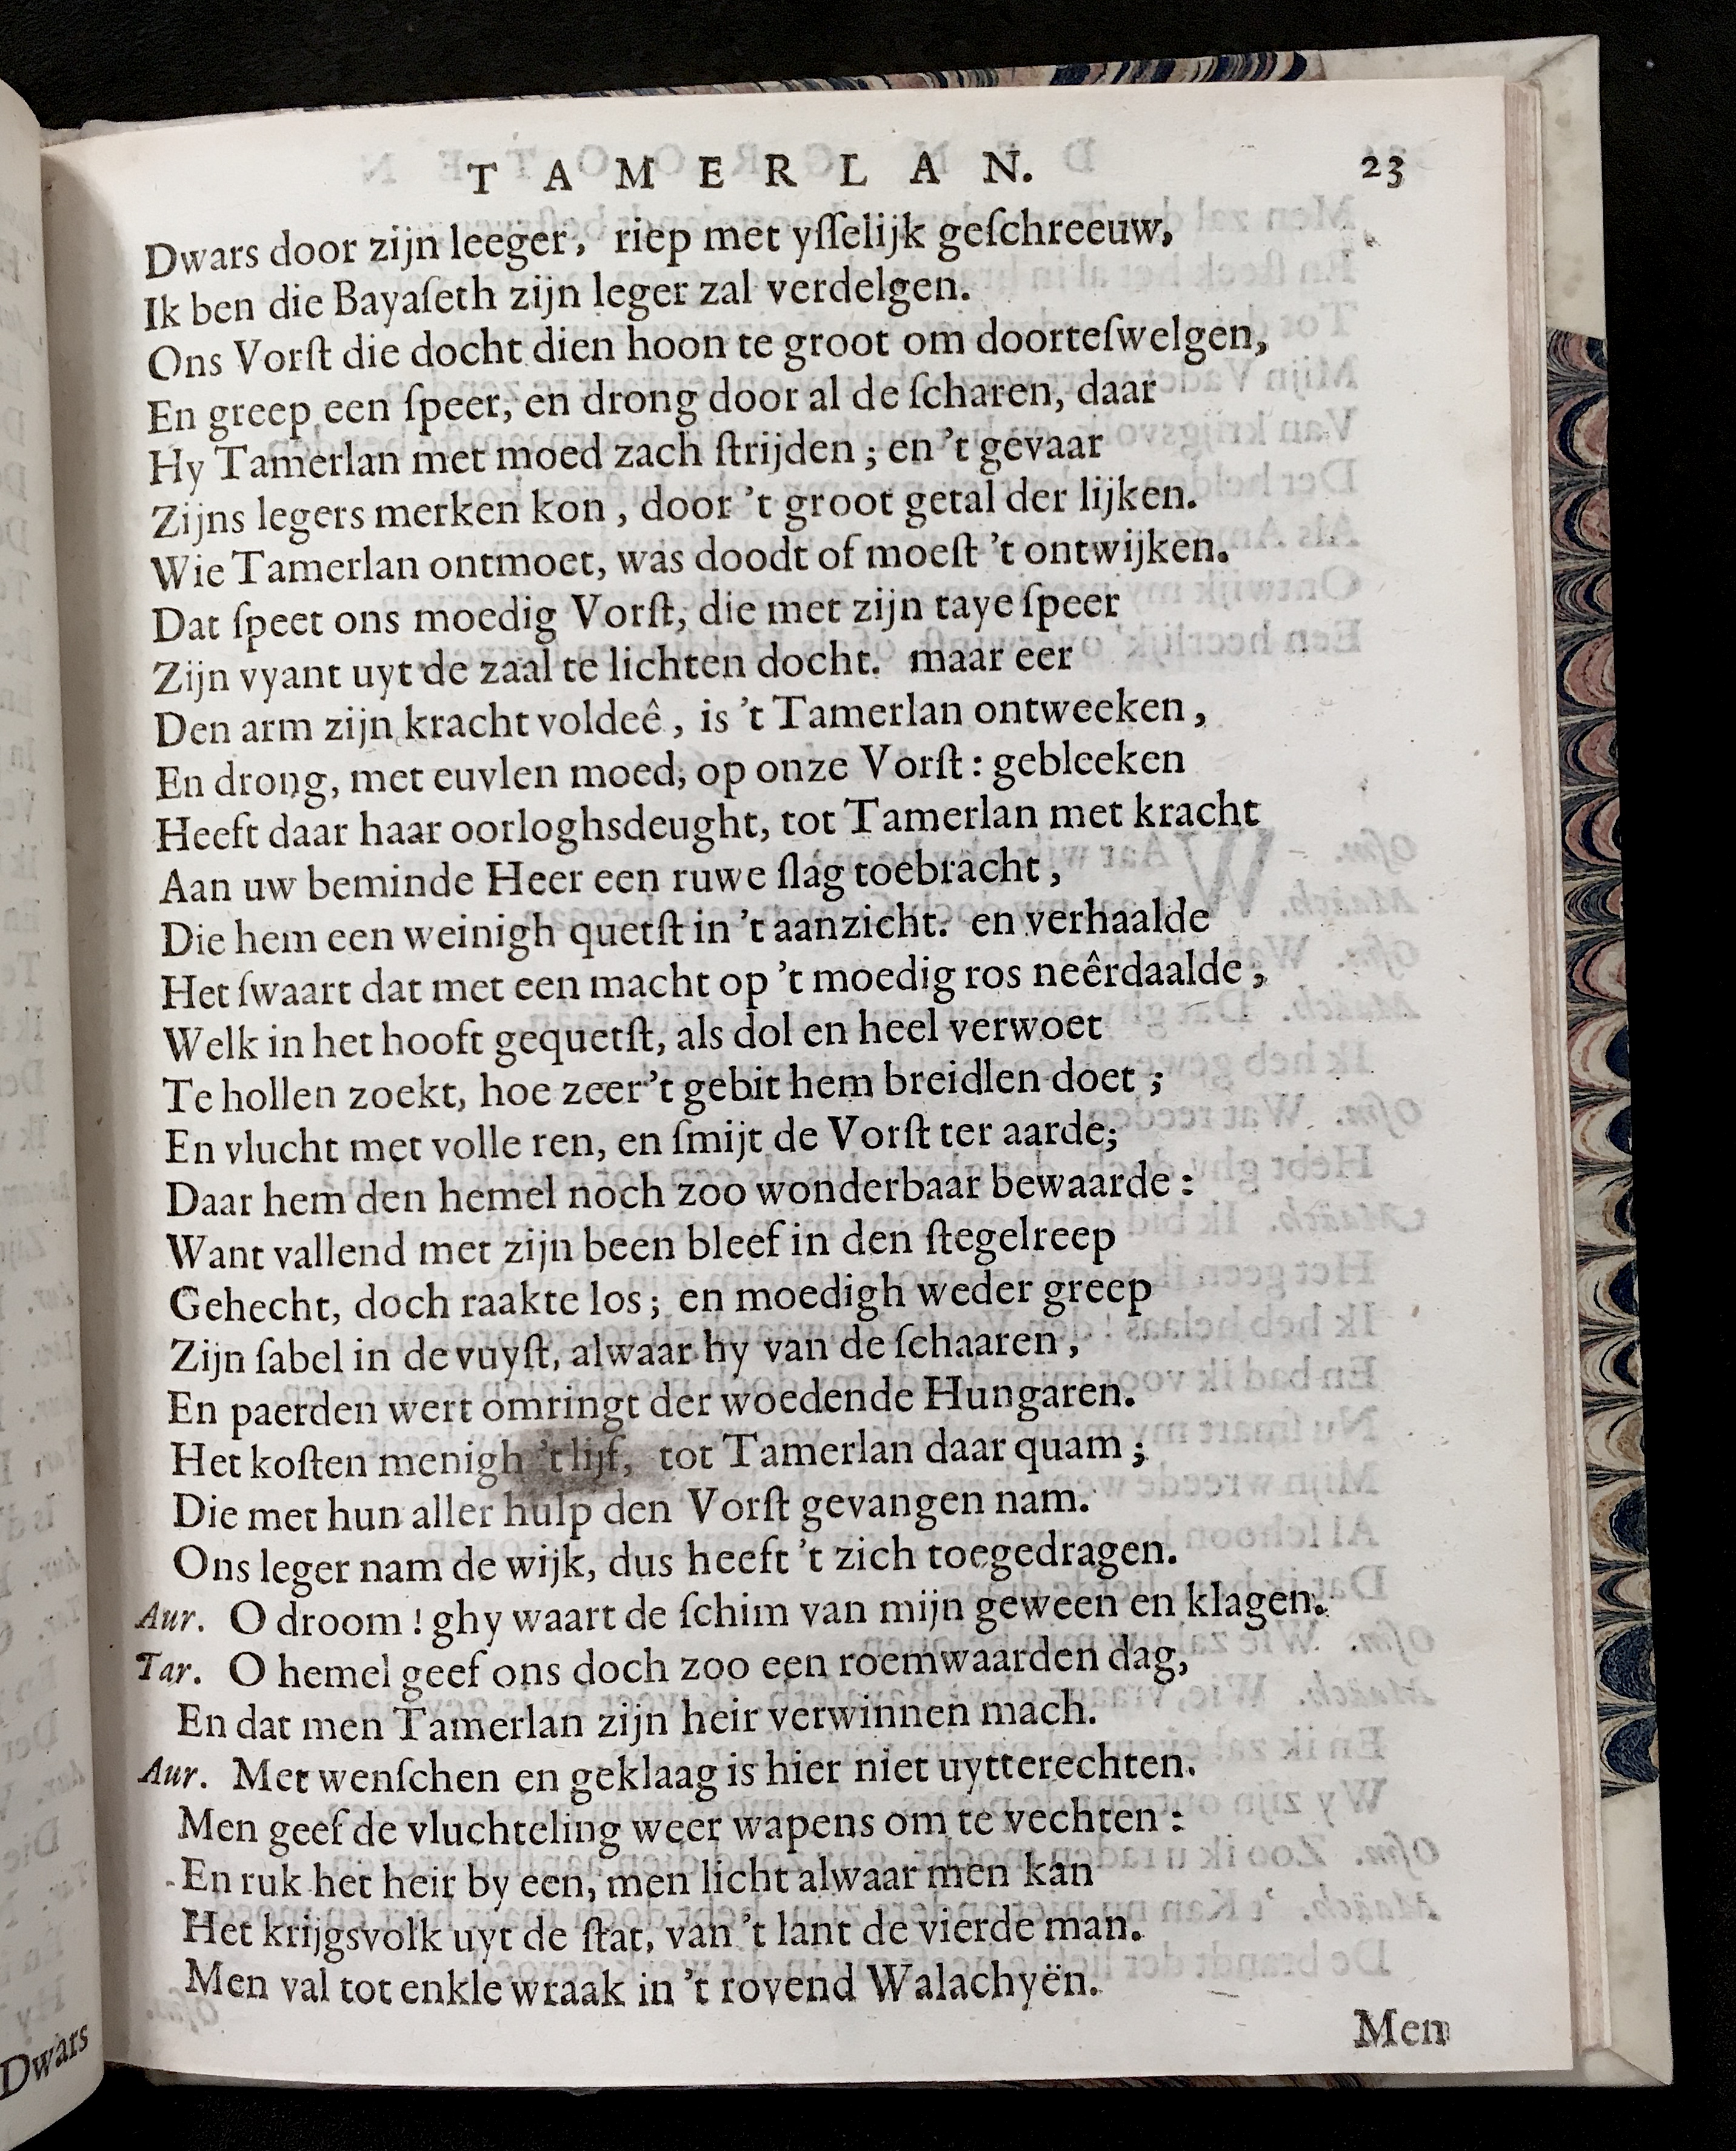 T A M E R L A N. 23
Dwars door zijn leeger, riep met yſſelijk geſchreeuw,
Ik ben die Bayaſeth zijn leger zal verdelgen.
Ons Vorſt die docht dien hoon te groot om doorteſwelgen,
En greep een ſpeer, en drong door al de ſcharen, daar
Hy Tamerlan met moed zach ſtrijden ; en 't gevaar
Zijns legers merken kon, door 't groot getal der lijken.
Wie Tamerlan ontmoet, was doodt of moeſt 't ontwijken.
Dat ſpeet ons moedig Vorſt, die met zijn taye ſpeer
Zijn vyant uyt de zaal te lichten docht. maar eer
Den arm zijn kracht voldeê, is 't Tamerlan ontweeken,
En drong, met euvlen moed, op onze Vorſt : gebleeken
Heeft daar haar oorloghsdeught, tot Tamerlan met kracht
Aan uw beminde Heer een ruwe ſlag toebracht,
Die hem een weinigh quetſt in 't aanzicht. en verhaalde
Het ſwaart dat met een macht op 't moedig ros neêrdaalde,
Welk in het hooft gequetſt, als dol en heel verwoet
Te hollen zoekt, hoe zeer 't gebit hem breidlen doet ;
En vlucht met volle ren, en ſmijt de Vorſt ter aarde;
Daar hem den hemel noch zoo wonderbaar bewaarde :
Want vallend met zijn been bleef in den ſtegelreep
Gehecht, doch raakte los ; en moedigh weder greep
Zijn ſabel in de vuyſt, alwaar hy van de ſchaaren,
En paerden wert omringt der woedende Hungaren.
Het koſten menigh 't lijf, tot Tamerlan daar quam ;
Die met hun aller hulp den Vorſt gevangen nam.
Ons leger nam de wijk, dus heeft 't zich toegedragen.
Aur. O droom ! ghy waart de ſchim van mijn geween en klagen.
Tar. O hemel geef ons doch zoo een roemwaarden dag,
En dat men Tamerlan zijn heir verwinnen mach.
Aur. Met wenſchen en geklaag is hier niet uytterechten.
Men geef de vluchteling weer wapens om te vechten :
En ruk het heir by een, men licht alwaar men kan
Het krijgsvolk uyt de ſtat, van 't lant de vierde man.
Men val tot enkle wraak in 't rovend Walachyën.
Men
Dwars